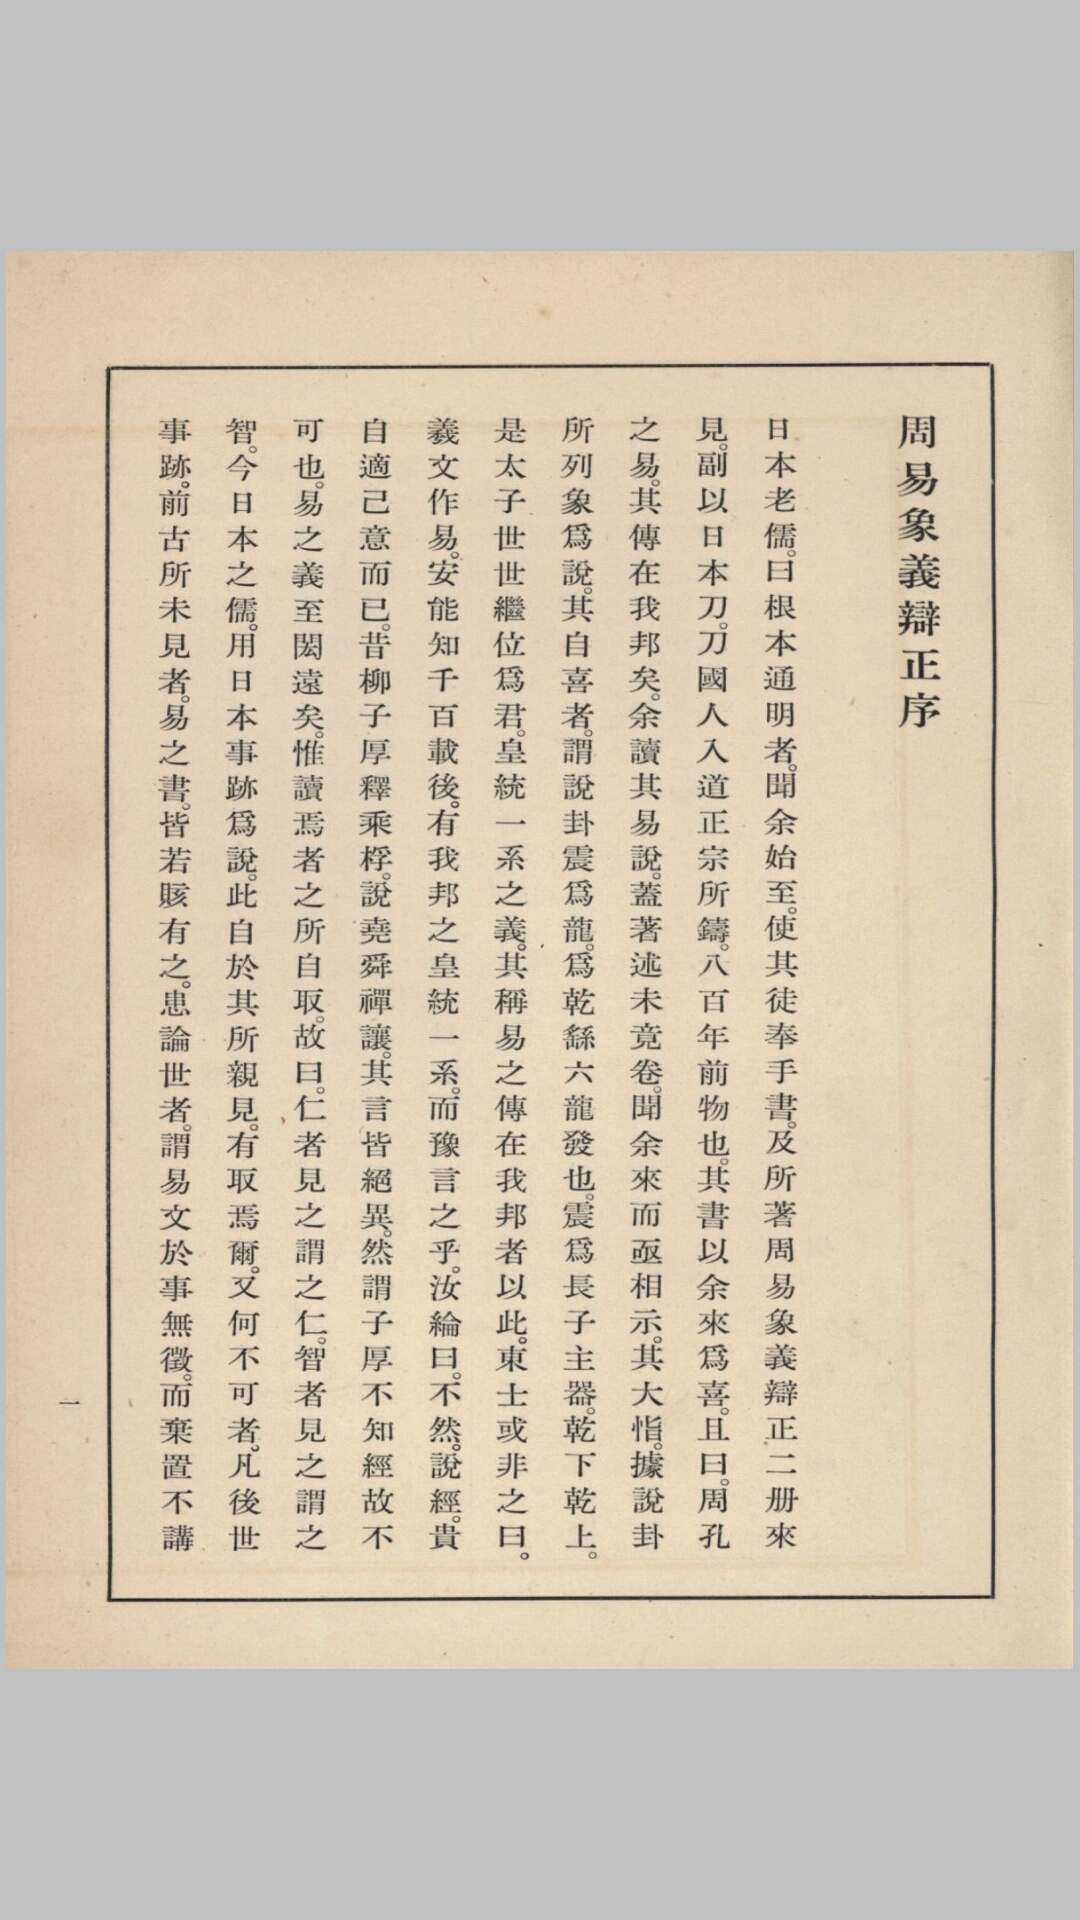 周易象義辯正序
日本老儒。曰根本通明者。聞余始至。使其徒奉手書。及所著周易象義辯正二册來
見。副以日本刀。刀國人入道正宗所鑄。八百年前物也。其書以余來爲喜。且曰。周孔
之易。其傳在我邦矣。余讀其易說。蓋著述未竟卷。聞余來而亟相示。其大恉。據說卦
所列象爲說。其自喜者。謂說卦震爲龍。爲乾繇六龍發也。震爲長子主器。乾下乾上。
是太子世世繼位爲君。皇統一系之義。其稱易之傳在我邦者以此。東士或非之曰。
羲文作易。安能知千百載後。有我邦之皇統一系。而豫言之乎。汝綸曰。不然。說經。貴
自適己意而已。昔柳子厚釋乘桴。說堯舜禪讓。其言皆絕異。然謂子厚不知經故不
可也。易之義至閎遠矣。惟讀焉者之所自取。故曰。仁者見之謂之仁。智者見之謂之
智。今日本之儒。用日本事跡爲說。此自於其所親見。有取焉爾。又何不可者。凡後世
事跡。前古所未見者。易之書。皆若賅有之。患論世者。謂易文於事無徵。而棄置不講
一